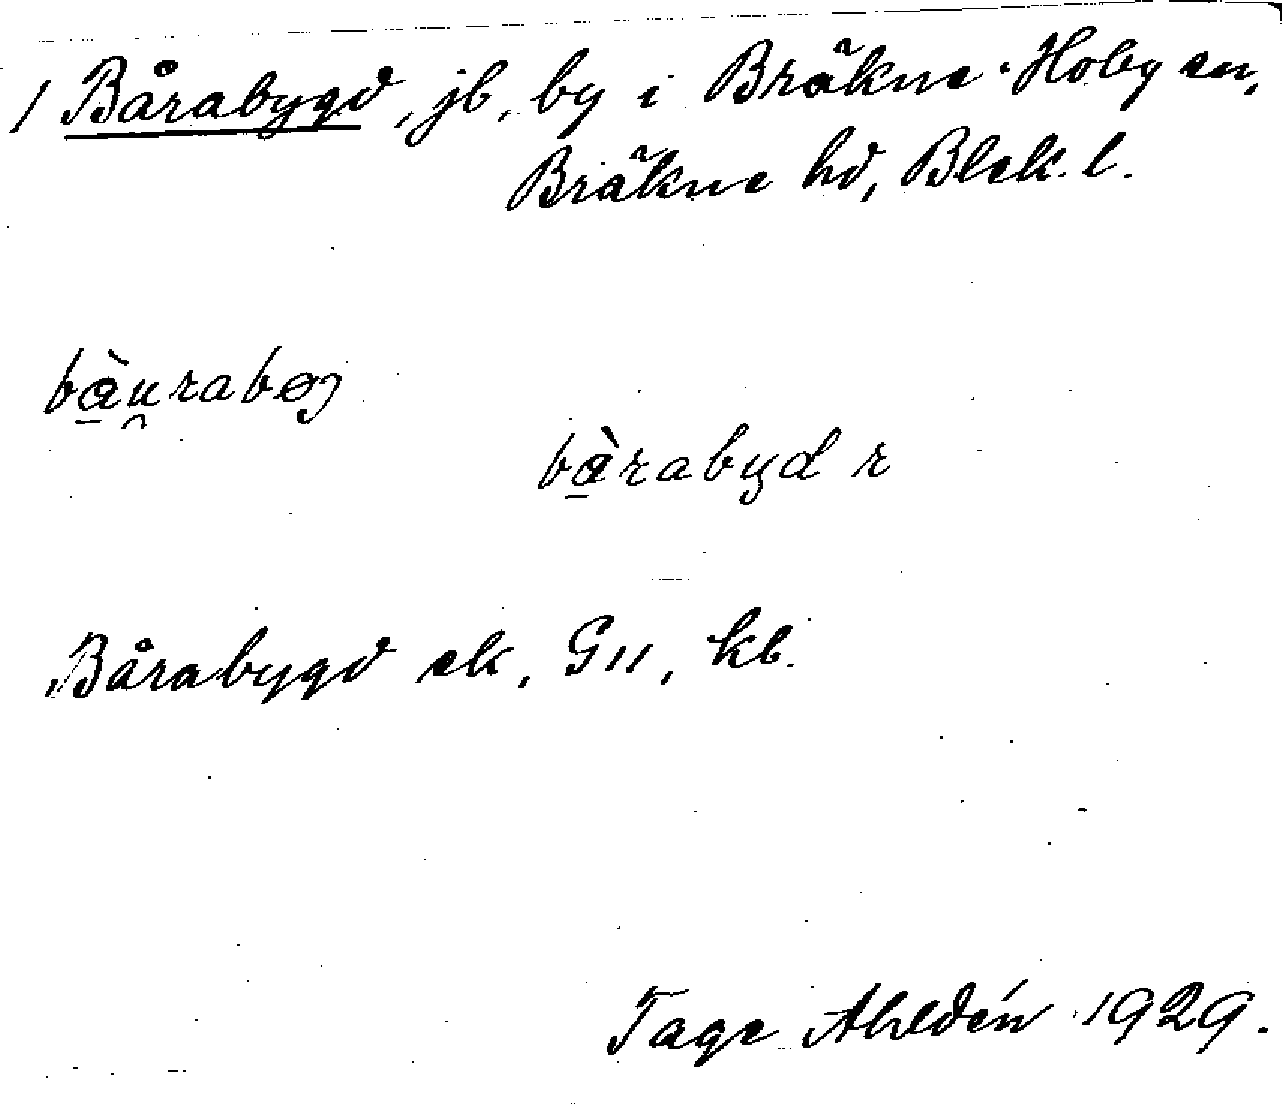 1 Bårabygd, jb, by i Bräkne-Hoby sn,
Bräkne hd, Blek. l.
bà̱u̯rabøȷ
bà̱rabyd r
Bårabygd ek, G11, kb.
Tage Ahldén 1929.